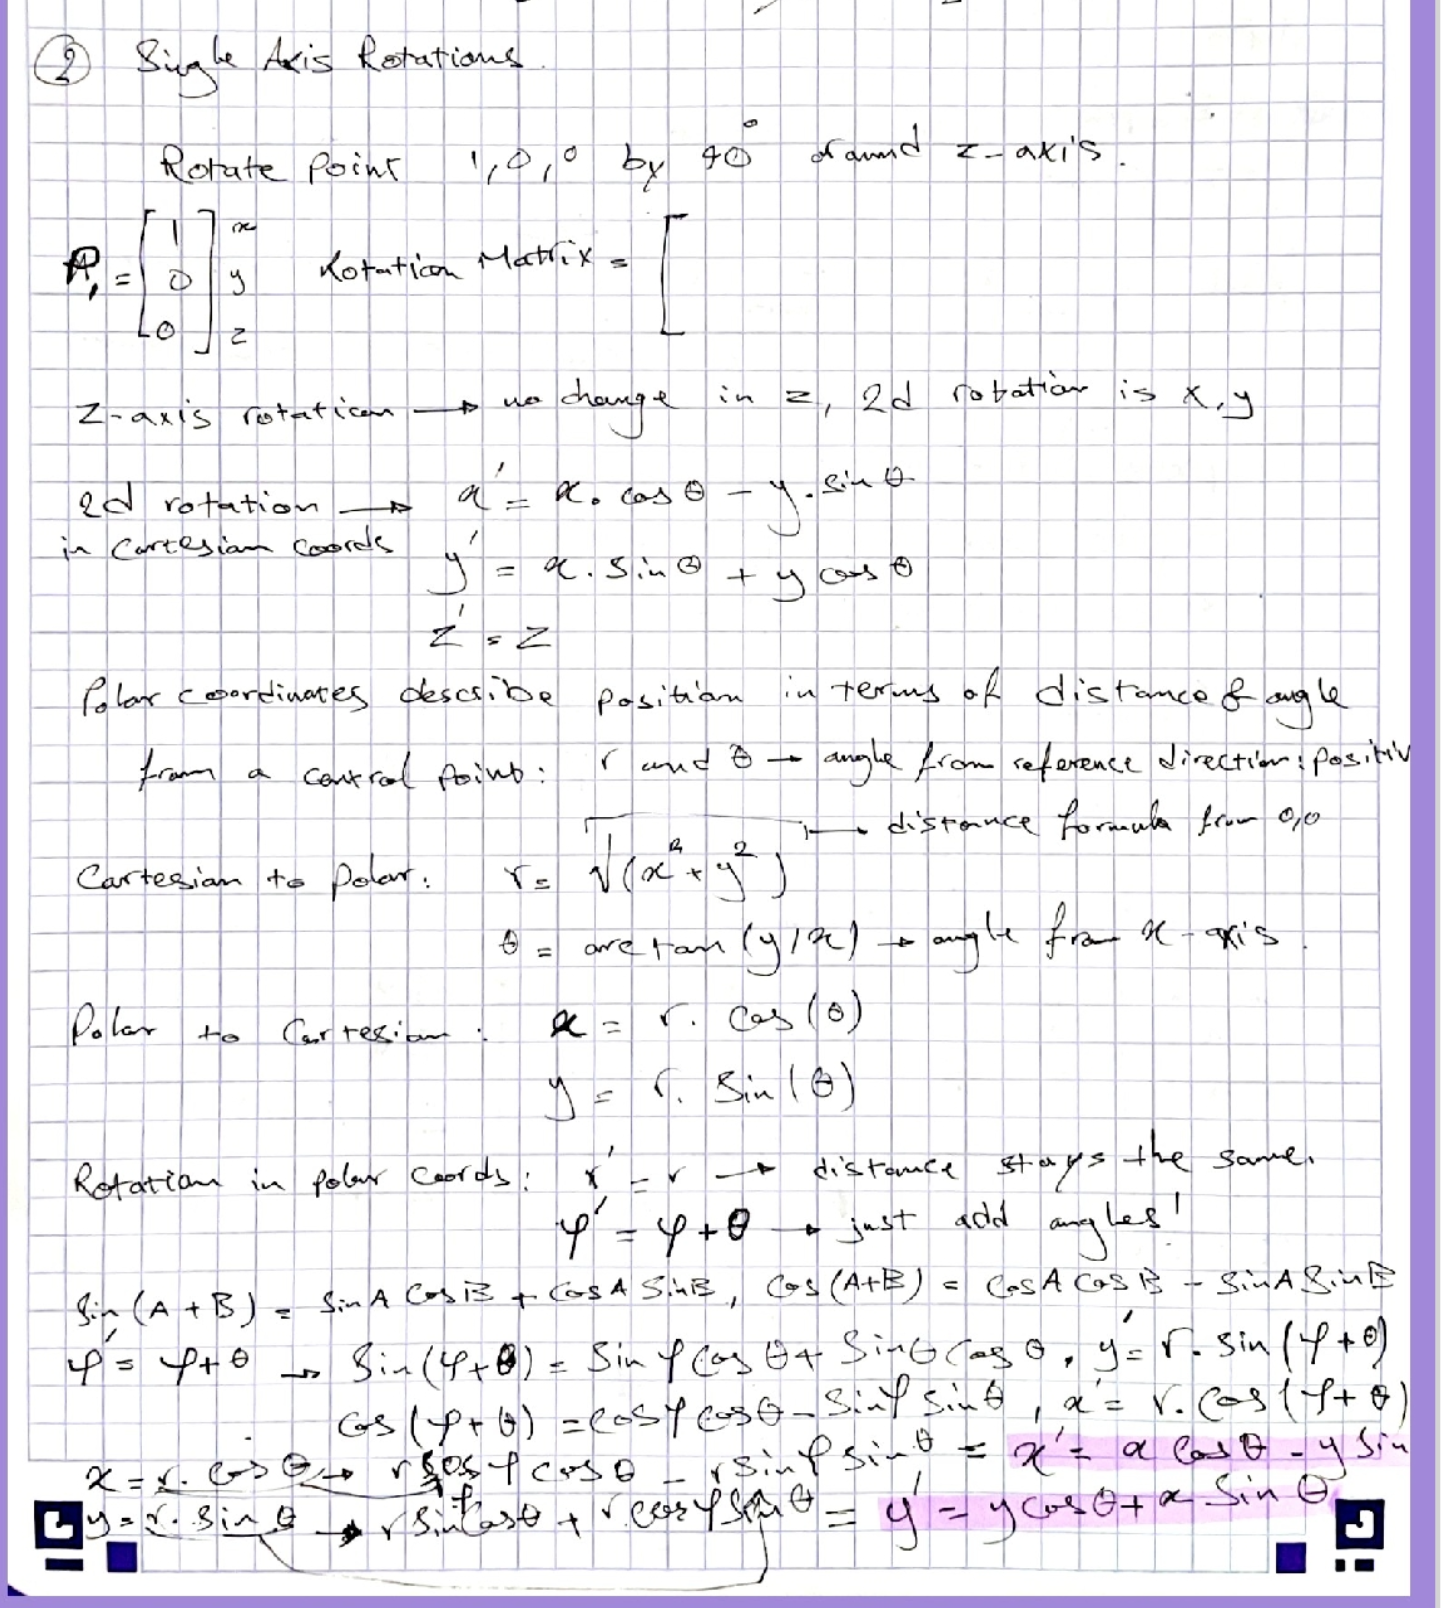 ② Single Axis Rotations.
Rotate point 1,0,0 by 90° around z-axis.
P₁ = [1 0 0] x y z Rotation Matrix = [
Z-axis rotation → no change in z, 2d rotation is x,y
2d rotation → x' = x. cos θ - y. sin θ
in Cartesian coords
y' = x. sin θ + y cos θ
z' = z
Polar coordinates describe position in terms of distance & angle
from a central point: r and θ → angle from reference direction: positiv
→ distance formula from 0,0
Cartesian to Polar: r = √(x² + y²)
θ = arctan (y/x) → angle from x-axis.
Polar to Cartesian: x = r. cos(θ)
y = r. sin(θ)
Rotation in polar coords: r' = r → distance stays the same.
φ' = φ + θ → just add angles!
Sin (A + B) = Sin A Cos B + Cos A Sin B, Cos (A+B) = Cos A Cos B - Sin A Sin B
φ' = φ + θ → Sin(φ + θ) = Sin φ Cos θ + Sin θ Cos θ, y' = r. sin (φ + θ)
Cos (φ + θ) = cos φ cos θ - Sin φ sin θ, x' = r. Cos (φ + θ)
x = r. Cos θ → r cos φ cos θ - r sin φ sin θ = x' = x Cos θ - y Sin
y = r. sin θ → r Sin φ Cos θ + r. cos φ sin θ = y' = y cos θ + x Sin θ